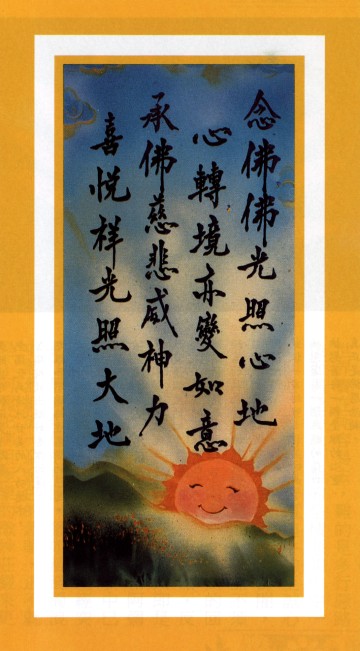 念佛佛光照心地
心轉境亦變如意
承佛慈悲威神力
喜悅祥光照大地